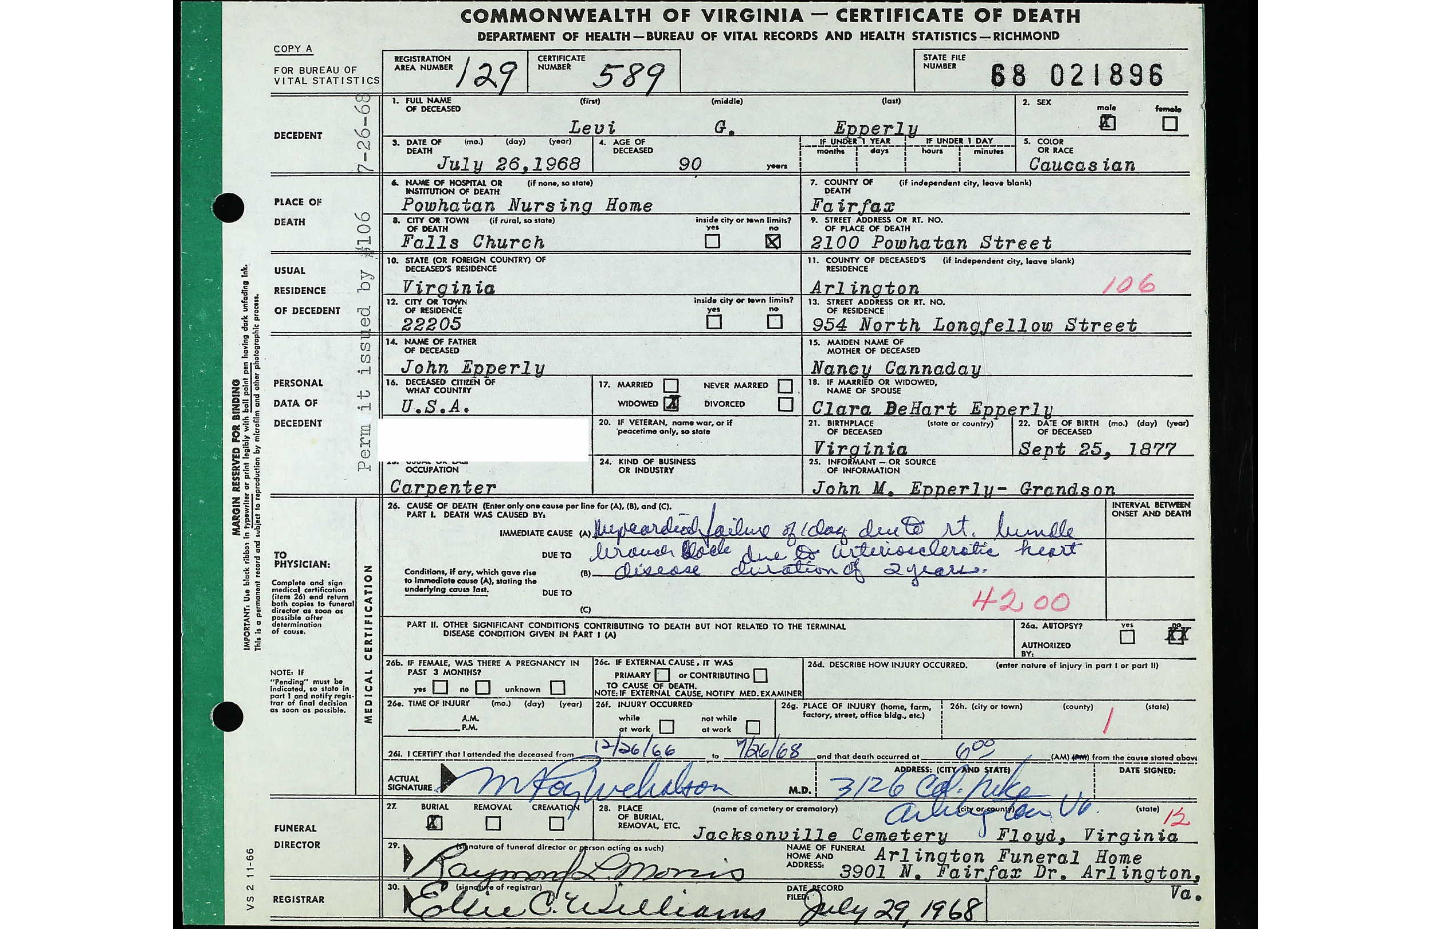 COMMONWEALTH OF VIRGINIA — CERTIFICATE OF DEATH
DEPARTMENT OF HEALTH—BUREAU OF VITAL RECORDS AND HEALTH STATISTICS—RICHMOND
COPY A
FOR BUREAU OF
VITAL STATISTICS
REGISTRATION
AREA NUMBER 129
CERTIFICATE
NUMBER 589
STATE FILE
NUMBER 68 021896
Permit issued by #106 7-26-68
DECEDENT
1. FULL NAME (first) (middle) (last)
OF DECEASED
Levi G. Epperly
2. SEX
male female
X
3. DATE OF (mo.) (day) (year)
DEATH
July 26,1968
4. AGE OF
DECEASED
90 years
IF UNDER 1 YEAR IF UNDER 1 DAY
months days hours minutes
5. COLOR
OR RACE
Caucasian
PLACE OF
DEATH
6. NAME OF HOSPITAL OR (if none, so state)
INSTITUTION OF DEATH
Powhatan Nursing Home
7. COUNTY OF (if independent city, leave blank)
DEATH
Fairfax
8. CITY OR TOWN (if rural, so state)
OF DEATH
Falls Church
inside city or town limits?
yes no
X
9. STREET ADDRESS OR RT. NO.
OF PLACE OF DEATH
2100 Powhatan Street
USUAL
RESIDENCE
OF DECEDENT
10. STATE (OR FOREIGN COUNTRY) OF
DECEASED'S RESIDENCE
Virginia
11. COUNTY OF DECEASED'S (if independent city, leave blank)
RESIDENCE
Arlington 106
12. CITY OR TOWN
OF RESIDENCE
22205
inside city or town limits?
yes no
13. STREET ADDRESS OR RT. NO.
OF RESIDENCE
954 North Longfellow Street
PERSONAL
DATA OF
DECEDENT
14. NAME OF FATHER
OF DECEASED
John Epperly
15. MAIDEN NAME OF
MOTHER OF DECEASED
Nancy Cannaday
16. DECEASED CITIZEN OF
WHAT COUNTRY
U.S.A.
17. MARRIED NEVER MARRIED
WIDOWED X DIVORCED
18. IF MARRIED OR WIDOWED,
NAME OF SPOUSE
Clara DeHart Epperly
20. IF VETERAN, name war, or if
peacetime only, so state
21. BIRTHPLACE (state or country)
OF DECEASED
Virginia
22. DATE OF BIRTH (mo.) (day) (year)
OF DECEASED
Sept 25, 1877
OCCUPATION
Carpenter
24. KIND OF BUSINESS
OR INDUSTRY
25. INFORMANT — OR SOURCE
OF INFORMATION
John M. Epperly- Grandson
MARGIN RESERVED FOR BINDING
IMPORTANT: Use black ribbon in typewriter or print legibly with ball point pen having dark unfading ink.
This is a permanent record and subject to reproduction by microfilm and other photographic process.
TO
PHYSICIAN:
Complete and sign
medical certification
(item 26) and return
both copies to funeral
director as soon as
possible after
determination
of cause.
NOTE: IF
"Pending" must be
indicated, so state in
part I and notify regis-
trar of final decision
as soon as possible.
MEDICAL CERTIFICATION
26. CAUSE OF DEATH (Enter only one cause per line for (A), (B), and (C).
PART I. DEATH WAS CAUSED BY:
INTERVAL BETWEEN
ONSET AND DEATH
IMMEDIATE CAUSE (A) Myocardial failure of 1 day due to rt. bundle
DUE TO branch block due to arteriosclerotic heart
Conditions, if any, which gave rise
to immediate cause (A), stating the
underlying cause last.
(B) disease duration of 2 years.
DUE TO
(C)
4200
PART II. OTHER SIGNIFICANT CONDITIONS CONTRIBUTING TO DEATH BUT NOT RELATED TO THE TERMINAL
DISEASE CONDITION GIVEN IN PART I (A)
26a. AUTOPSY? yes no
XX
AUTHORIZED
BY:
26b. IF FEMALE, WAS THERE A PREGNANCY IN
PAST 3 MONTHS?
yes no unknown
26c. IF EXTERNAL CAUSE, IT WAS
PRIMARY or CONTRIBUTING
TO CAUSE OF DEATH.
NOTE: IF EXTERNAL CAUSE, NOTIFY MED. EXAMINER
26d. DESCRIBE HOW INJURY OCCURRED. (enter nature of injury in part I or part II)
26e. TIME OF INJURY (mo.) (day) (year)
A.M.
P.M.
26f. INJURY OCCURRED
while at work not while at work
26g. PLACE OF INJURY (home, farm,
factory, street, office bldg., etc.)
26h. (city or town) (county) (state)
1
26i. I CERTIFY that I attended the deceased from 12/26/66 to 7/26/68 and that death occurred at 6:00 (AM) (PM) from the cause stated above
ACTUAL
SIGNATURE M.D.
ADDRESS: (CITY AND STATE)
3126 Col. Pike
Arlington Va
DATE SIGNED:
FUNERAL
DIRECTOR
27. BURIAL REMOVAL CREMATION
X
28. PLACE (name of cemetery or crematory) (city or county) (state)
OF BURIAL,
REMOVAL, ETC.
12
Jacksonville Cemetery Floyd, Virginia
29. (signature of funeral director or person acting as such)
Raymond L. Morris
NAME OF FUNERAL
HOME AND
ADDRESS:
Arlington Funeral Home
3901 N. Fairfax Dr. Arlington,
Va.
REGISTRAR
30. (signature of registrar)
Elsie C. Williams
DATE RECORD
FILED:
July 29, 1968
VS 2 11-66